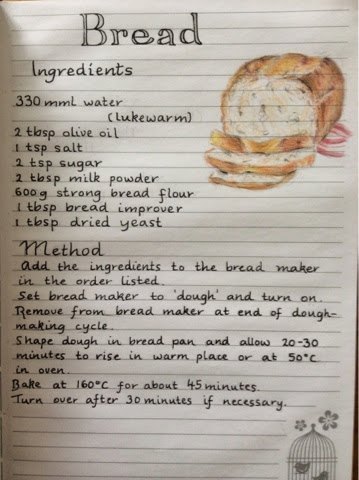 Bread
Ingredients
330 mml water
(lukewarm)
2 tbsp olive oil
1 tsp salt
2 tsp sugar
2 tbsp milk powder
600g strong bread flour
1 tbsp bread improver
1 tbsp dried yeast
Method
Add the ingredients to the bread maker
in the order listed.
Set bread maker to 'dough' and turn on.
Remove from bread maker at end of dough-
making cycle.
Shape dough in bread pan and allow 20-30
minutes to rise in warm place or at 50°C
in oven.
Bake at 160°C for about 45 minutes.
Turn over after 30 minutes if necessary.